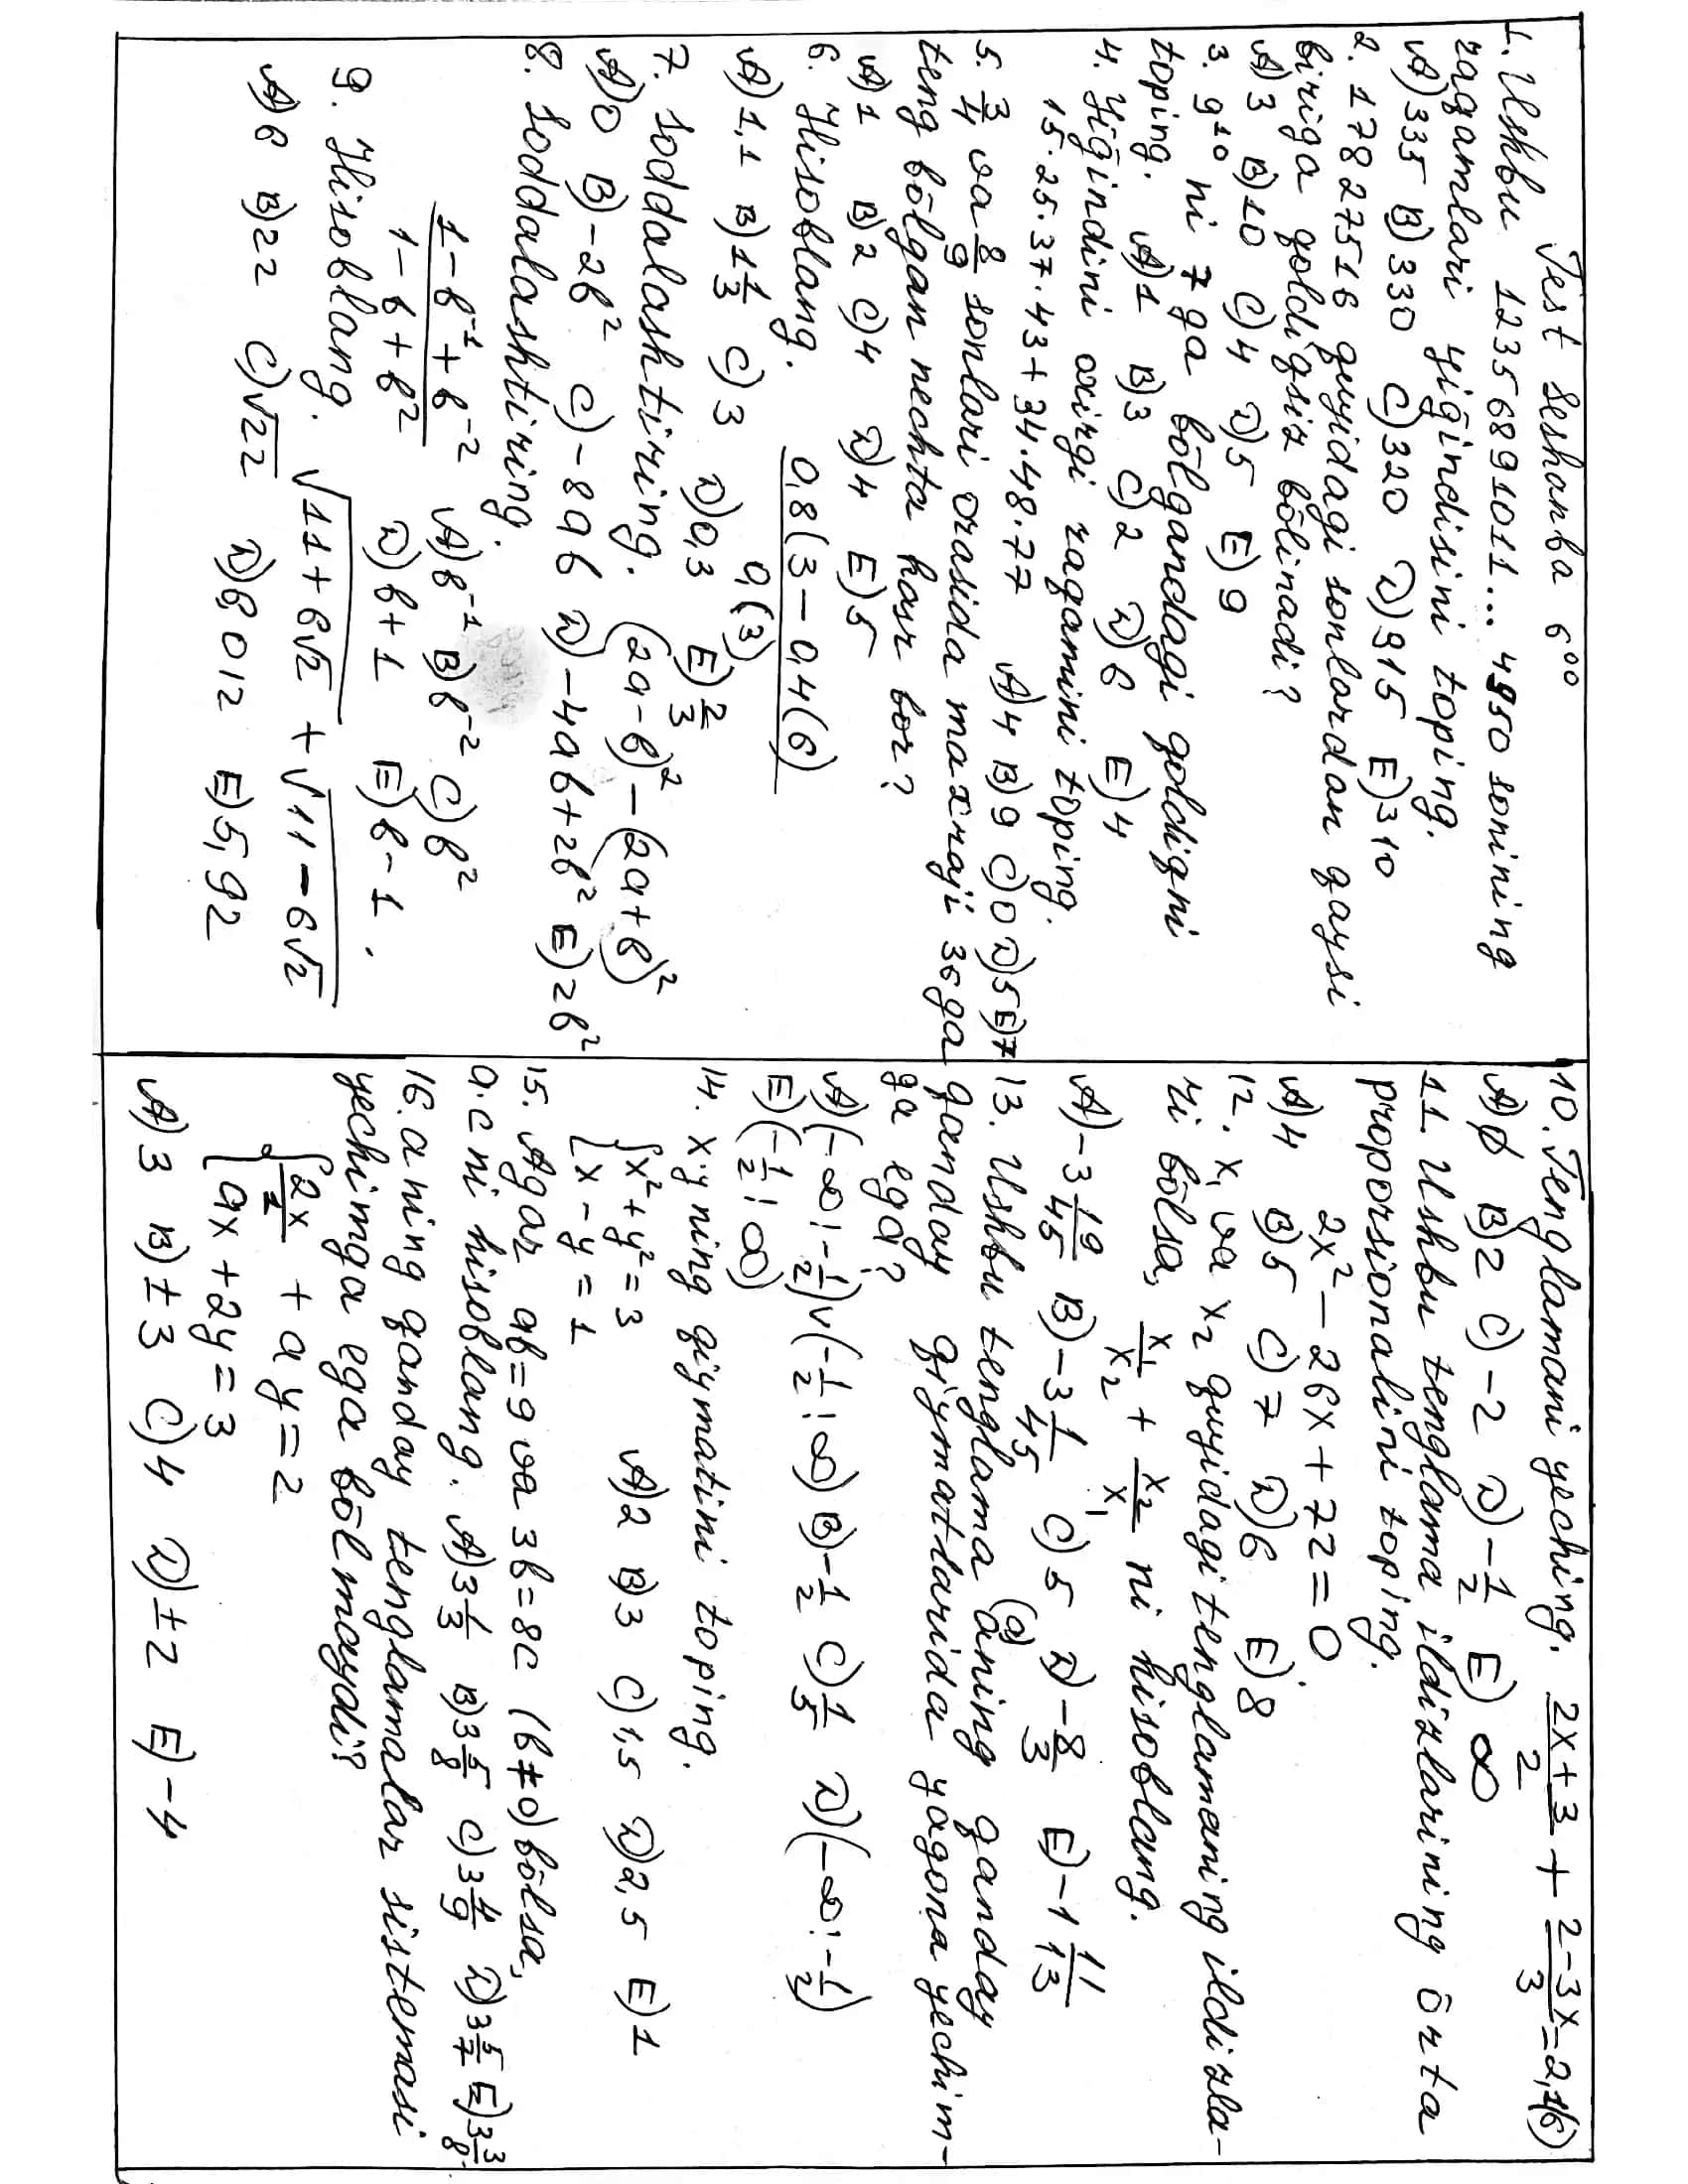 Test Seshanba 6⁰⁰
1. Ushbu 123568910 11... 4950 sonining
raqamlari yiğindisini toping.
A) 335 B) 330 C) 320 D) 315 E) 310
2. 178 27516 quyidagi sonlardan qaysi
biriga qoldiqsiz bōlinadi?
A) 3 B) 10 C) 4 D) 5 E) 9
3. 9¹⁰ ni 7 ga bōlgandagi qoldiqni
toping. A) 1 B) 3 C) 2 D) 6 E) 4
4. Yiğindini oxirgi raqamini toping.
15·25·37·43+34·48·77 A) 4 B) 9 C) 0 D) 5 E) 7
5. 3/4 va 8/9 sonlari orasida maxraji 36 ga
teng bōlgan nechta kasr bor?
A) 1 B) 2 C) 4 D) 4 E) 5
6. Hisoblang. 0,8(3 - 0,4(6) / 0,(3)
A) 1,1 B) 1 1/3 C) 3 D) 0,3 E) 2/3
7. Soddalashtiring. (2a-b)² - (2a+b)²
A) 0 B) -2b² C) -8ab D) -4ab+2b² E) 2b²
8. Soddalashtiring.
(1-b⁻¹+b⁻²) / (1-b+b²) A) b⁻¹ B) b⁻² C) b²
D) b+1 E) b-1.
9. Hisoblang. √(11+6√2) + √(11-6√2)
A) 6 B) 22 C) √22 D) 6,012 E) 5,92
10. Tenglamani yeching. (2x+3)/2 + (2-3x)/3 = 2,1(6)
A) ∅ B) 2 C) -2 D) -1/2 E) ∞
11. Ushbu tenglama ildizlarining ōrta
proporsionalini toping.
2x² - 26x + 72 = 0
A) 4 B) 5 C) 7 D) 6 E) 8
12. x₁ va x₂ quyidagi tenglamaning ildizla-
ri bōlsa, x₁/x₂ + x₂/x₁ ni hisoblang.
A) -3 19/45 B) -3 1/45 C) 5 D) -8/3 E) -1 11/13
13. Ushbu tenglama (a) aning qanday
qanday qiymatlarida yagona yechim-
ga ega?
A) (-∞; -1/2) ∨ (-1/2; ∞) B) -1/2 C) 1/5 D) (-∞; -1/2)
E) (-1/2; ∞)
14. x·y ning qiymatini toping.
{x² + y² = 3
{x - y = 1 A) 2 B) 3 C) 1,5 D) 2,5 E) 1
15. Agar ab=9 va 3b=8c (b≠0) bōlsa,
a·c ni hisoblang. A) 3 1/3 B) 3 5/8 C) 3 4/9 D) 3 5/7 E) 3 3/8.
16. a ning qanday tenglamalar sistemasi
yechimga ega bōlmaydi?
{2x/1 + ay = 2
{ax + 2y = 3
A) 3 B) ±3 C) 4 D) ±2 E) -4